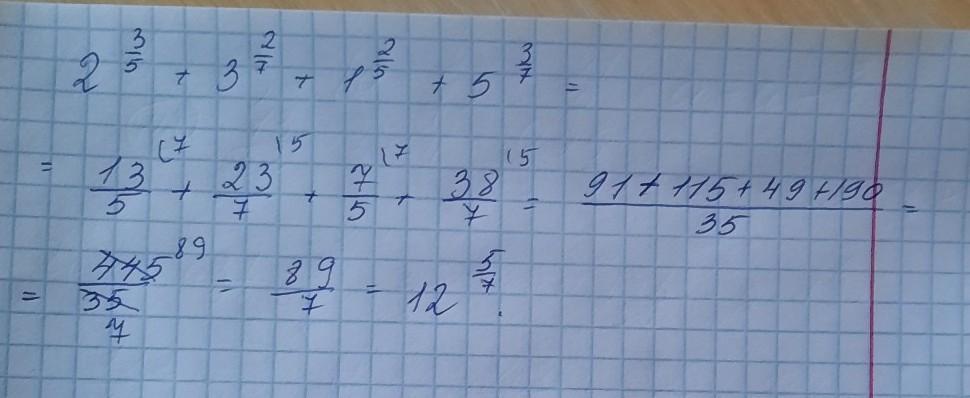 2 3/5 + 3 2/7 + 1 2/5 + 5 3/7 =
= 13/5 (7 + 23/7 \5 + 7/5 (7 + 38/7 \5 = 91 + 115 + 49 + 190/35 =
= 445/35 89 7 = 89/7 = 12 5/7.